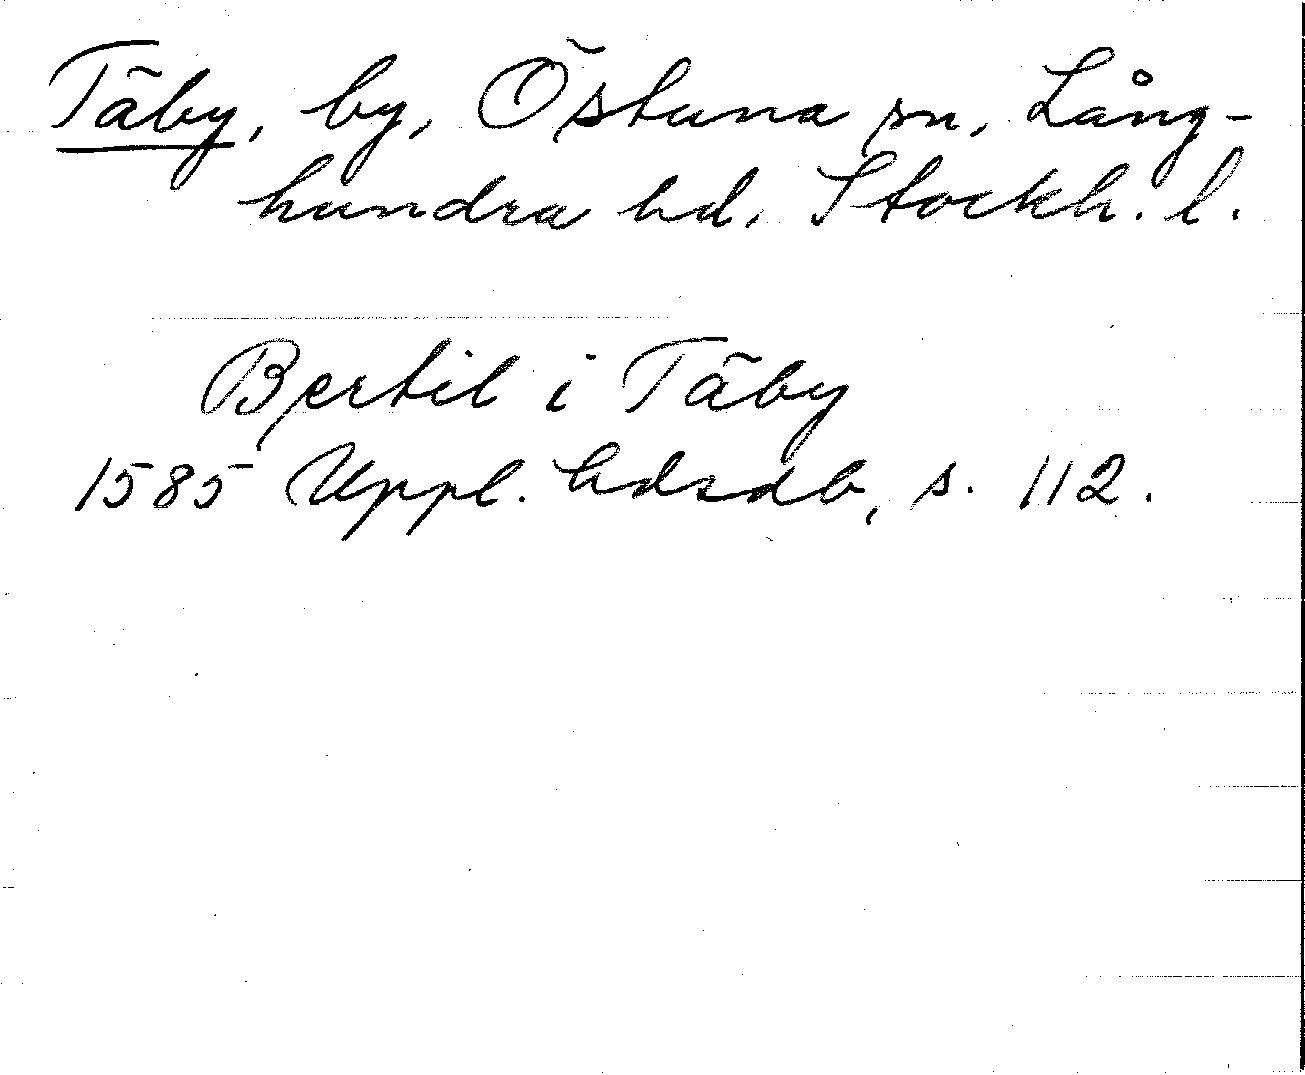 Täby, by, Östuna sn, Lång-
hundra hd, Stockh. l.
Bertil i Täby
1585 Uppl. hdsdb, s. 112.